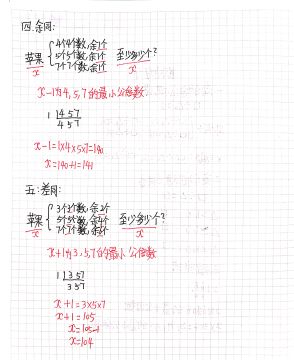 四.余同:
4个4个数,余1个
苹果 5个5个数,余1个 至少多少个?
x 7个7个数,余1个 x
x-1为4,5,7的最小公倍数
1 4 5 7
4 5 7
x-1=1×4×5×7=140
x=140+1=141
五:差同:
3个3个数,余2个
苹果 5个5个数,余4个 至少多少个?
x 7个7个数,余6个 x
x+1为3,5,7的最小公倍数
1 3 5 7
3 5 7
x+1=3×5×7
x+1=105
x=105-1
x=104